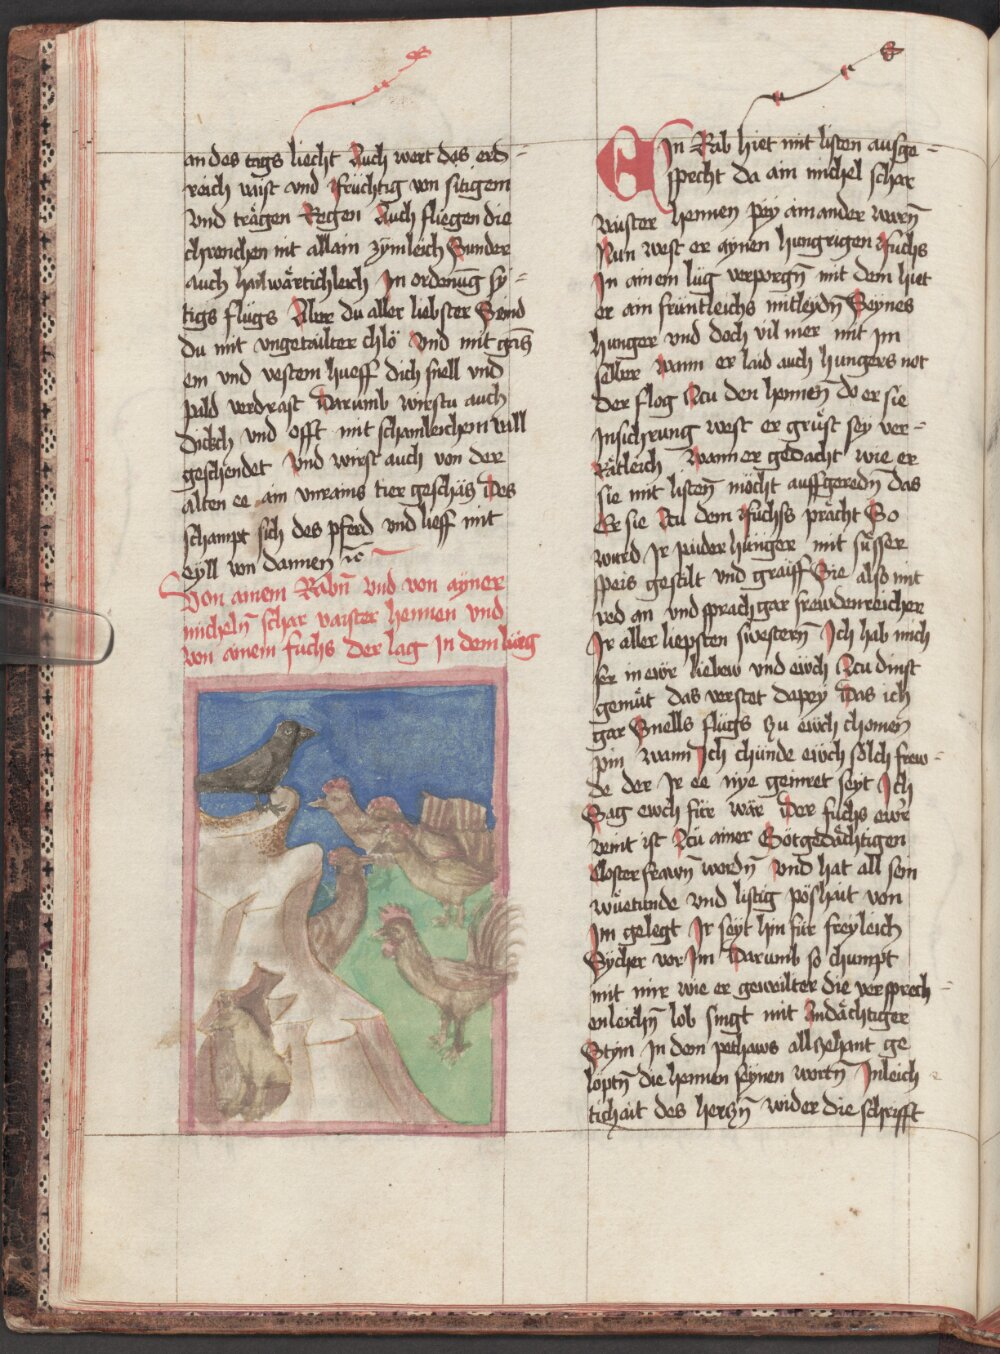 an des tags liecht Auch wert des erd-
reich vaist vnd früchtig von sitigem
vnd trägen Regen Auch fliegen die
chrenichen nit allain zymleich Sunder
auch hailwärtichleich In ordenūg sy-
tigs flugs Aber du aller liebster Seind
du mit vngetailter chlö vnd mit
em vnd vestem hueff dich snell vnd
pald verdrast Darumb wirstu auch
Dickch vnd offt mit schamleichem vall
geschendet vnd wirst auch von der
alten ee ain vnrains tier geschäs Des
schampt sich des pferd vnd lieff mit
eyll von dannen ꝛc
Von ainem Rabn̄ vnd von ayner
micheln̄ schar vaister hennen vnd
von ainem fuchs der lag In dem
Ein Rab hiet mit listen ausge-
specht da ain michel schar
vaister hennen pey ainander warn̄
Nun west er aynen hungrigen fuchs
In ainem lug verporgn̄ mit dem hiet
er ain früntleichs mitleydn̄ Seynes
hunger vnd doch vil mer mit im
selber Wann er laid auch hungers not
Der flog Zcu den hennen do er sie
Insichrung west er grüst sey ver-
Rätleich Wann er gedacht wie er
sie mit listen̄ möcht auffgeredn̄ das
Er sie Zcu dem fuchss prächt So
wurd Ir paider hunger mit süsser
speis gestilt vnd graiff Sie also mit
red an vnd sprach gar frewdenreicher
Ir aller liepsten swestern̄ Ich hab mich
ser in ewr liebew vnd ewch Zcu dinst
gemüt das verstet dapey Das ich
gar Snells flugs zu ewch chomen
pin wann Ich chünde ewch sölch frew-
de der Ir ee nye geinret seyt Ich
Sag ewch für war Der fuchs ewr
veint ist Zcu ainer Gotgedächtigen
Closterfrawn̄ wordn̄ vnd hat all sein
wüetunde vnd listig poshait von
Im gelegt Ir seyt hin für freyleich
Sycher vor Im Darumb so chumpt
mit mir wie er geweilter die versprech-
enleichn̄ lob singt mit Andächtiger
Stym In dem pethaws allzehant ge
loptn̄ die hennen seynen wortn̄ Inleich
tichait des herzn̄ wider die schrifft